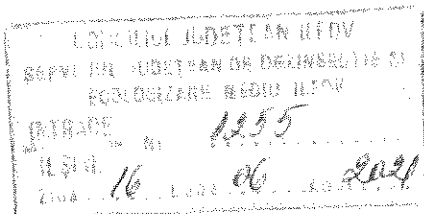 CONSILIUL JUDEȚEAN ILFOV
SERVICIUL JUDEȚEAN DE DRUMURI ȘI
ECOLOGIZARE MEDIU ILFOV
INTRARE
Nr. 1255
IEȘIRE
ZIUA 16 LUNA 06 2021